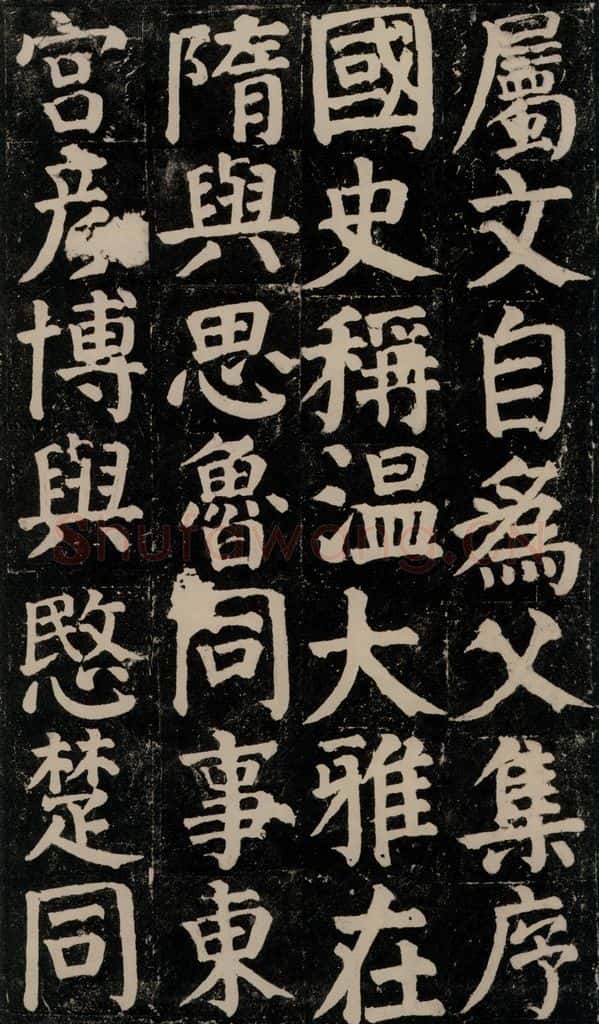 屬文自為父集序
國史稱溫大雅在
隋與思魯同事東
宮彥博與愍楚同
Shufawang.CN